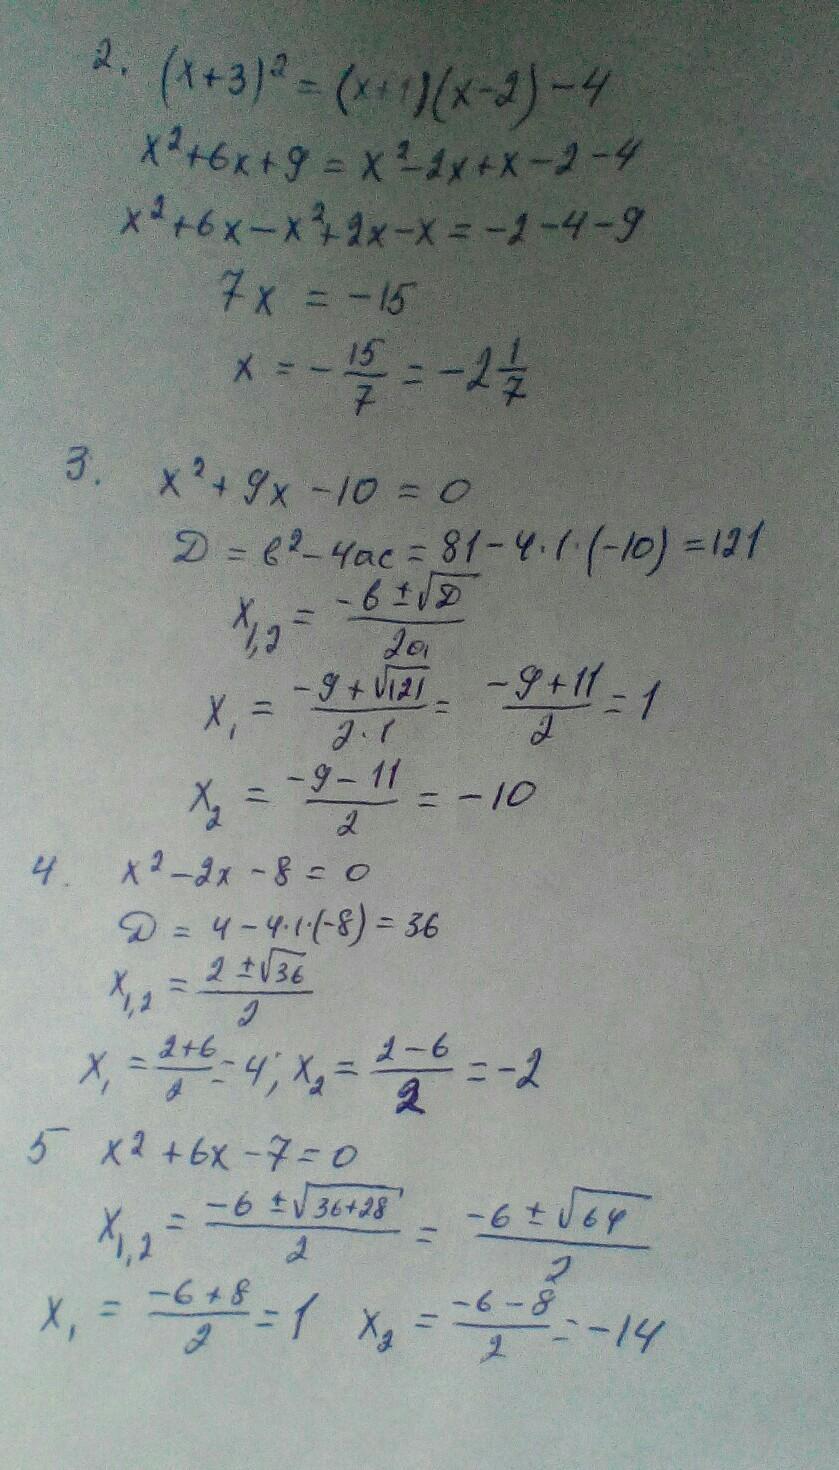 2. (x+3)² = (x+1)(x-2) - 4
x²+6x+9 = x²-2x+x-2-4
x²+6x-x²+2x-x = -2-4-9
7x = -15
x = -15/7 = -2 1/7
3. x²+9x-10=0
D = b²-4ac = 81-4·1·(-10) = 121
x₁,₂ = (-b±√D)/2a
x₁ = (-9+√121)/(2·1) = (-9+11)/2 = 1
x₂ = (-9-11)/2 = -10
4. x²-2x-8=0
D = 4-4·1·(-8) = 36
x₁,₂ = (2±√36)/2
x₁ = (2+6)/2 = 4; x₂ = (2-6)/2 = -2
5 x²+6x-7=0
x₁,₂ = (-6±√(36+28))/2 = (-6±√64)/2
x₁ = (-6+8)/2 = 1 x₂ = (-6-8)/2 = -14